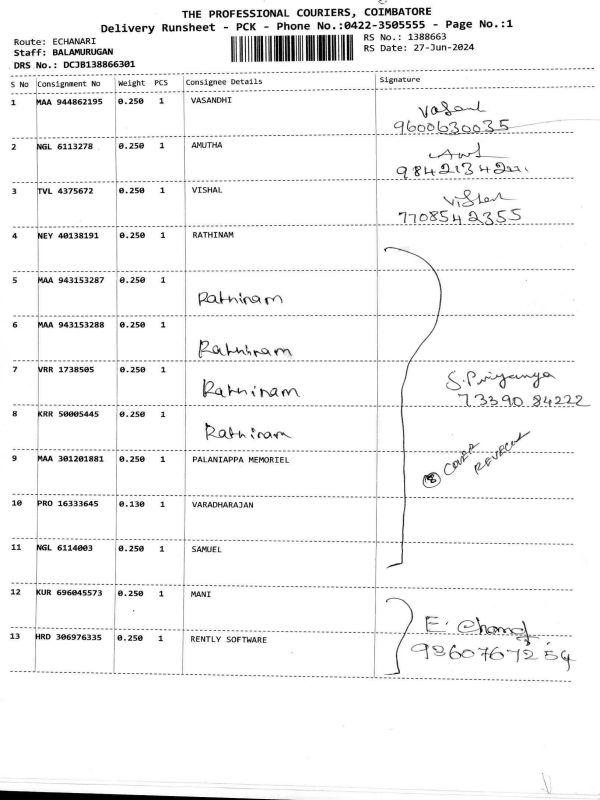 THE PROFESSIONAL COURIERS, COIMBATORE
Delivery Runsheet - PCK - Phone No.:0422-3505555 - Page No.:1
Route: ECHANARI
Staff: BALAMURUGAN
DRS No.: DCJB138866301
RS No.: 1388663
RS Date: 27-Jun-2024
S No Consignment No Weight PCS Consignee Details Signature
1 MAA 944862195 0.250 1 VASANDHI
9600630035
2 NGL 6113278 0.250 1 AMUTHA
3 TVL 4375672 0.250 1 VISHAL
7708542355
4 NEY 40138191 0.250 1 RATHINAM
5 MAA 943153287 0.250 1 Rathinam
6 MAA 943153288 0.250 1 Rathinam
7 VRR 1738505 0.250 1 Rathinam S. Priyanga
73390 84222
8 KRR 50005445 0.250 1 Rathinam
9 MAA 301201881 0.250 1 PALANIAPPA MEMORIEL 8 COVER
10 PRO 16333645 0.130 1 VARADHARAJAN
11 NGL 6114003 0.250 1 SAMUEL
12 KUR 696045573 0.250 1 MANI
13 HRD 306976335 0.250 1 RENTLY SOFTWARE